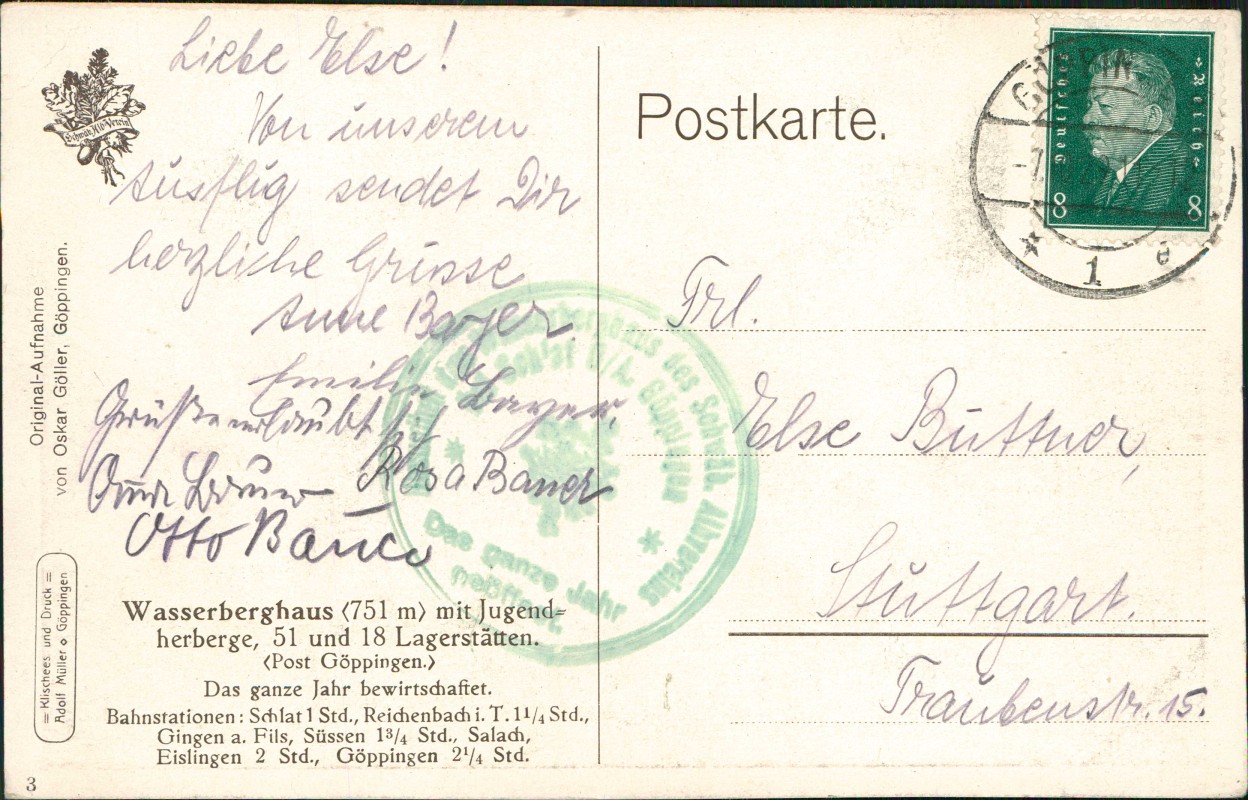 Liebe Else!
Von unserem
Ausflug sendet Dir
herzliche Grüsse
Anne Bayer
Emilie Bayer,
Grüße erlaubt sich
Rosa Bauer
Otto Bauer
Schwäb. Alb-Verein
Original-Aufnahme
von Oskar Göller, Göppingen.
= Klischees und Druck =
Adolf Müller ⋄ Göppingen
Wasserberghaus (751 m) mit Jugend=
herberge, 51 und 18 Lagerstätten.
(Post Göppingen.)
Das ganze Jahr bewirtschaftet.
Bahnstationen: Schlat 1 Std., Reichenbach i. T. 1 1/4 Std.,
Gingen a. Fils, Süssen 1 3/4 Std., Salach,
Eislingen 2 Std., Göppingen 2 1/4 Std.
3
Postkarte.
Deutsches Reich
8 8
GÖPPIN
* 1 e
Wasserberghaus des Schwäb. Albvereins
Schlat O/A. Göppingen
Das ganze Jahr
geöffnet.
Frl.
Else Büttner,
Stuttgart.
Traubenstr. 15.